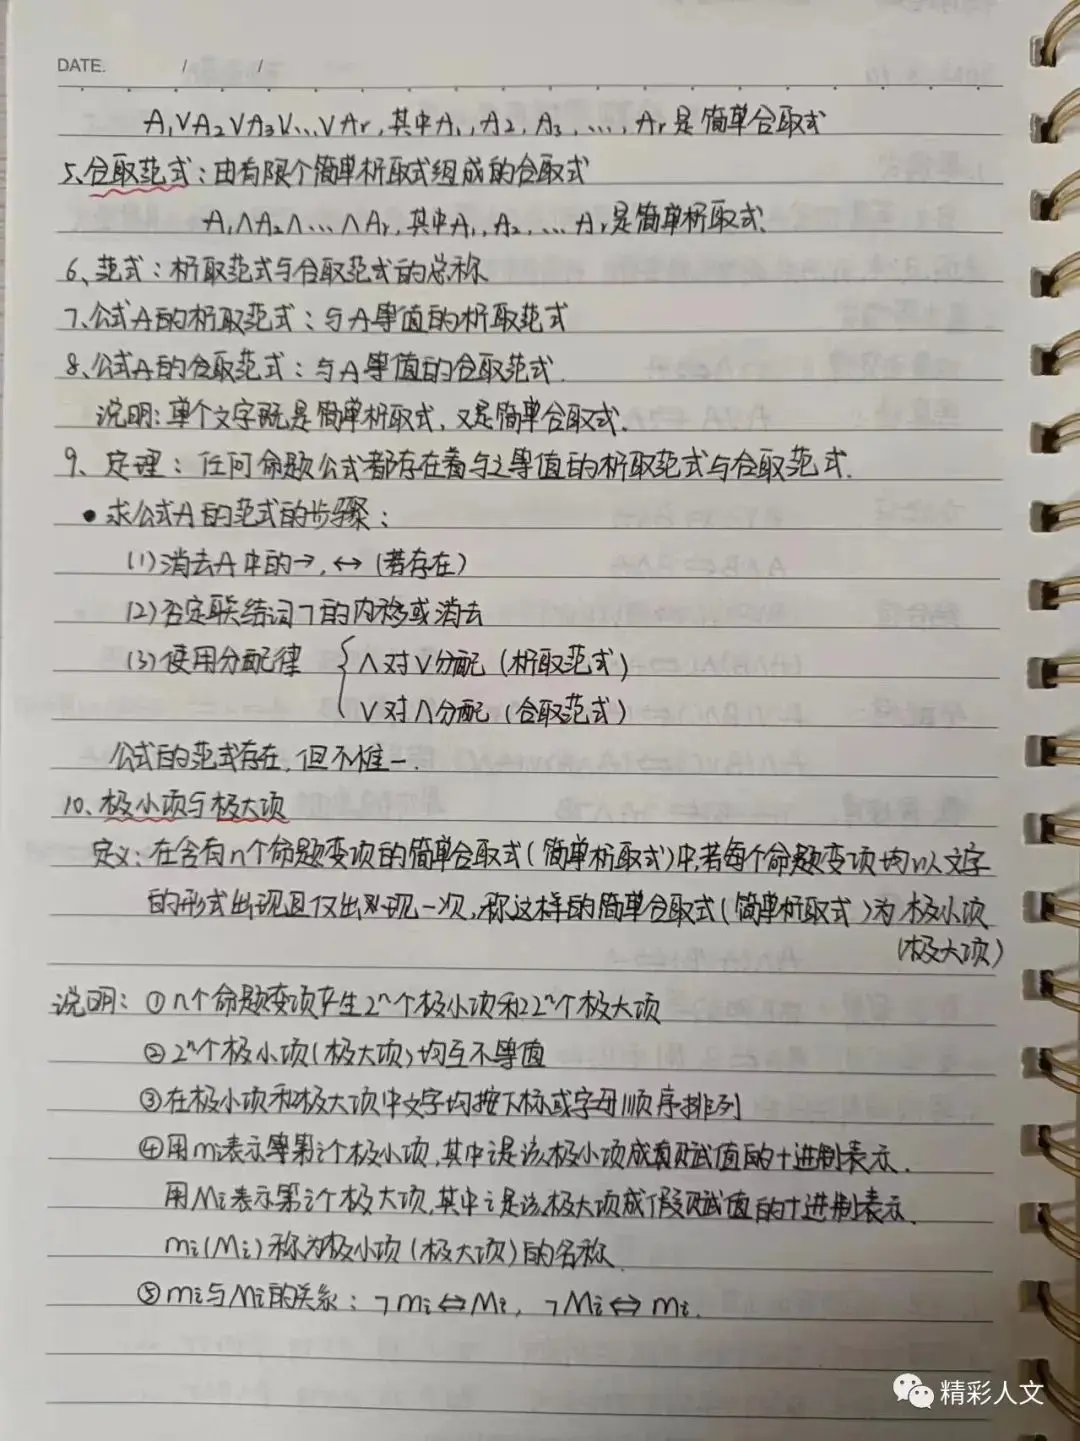 DATE. / /
A₁∨A₂∨A₃∨...∨Ar,其中A₁,A₂,A₃,...,Ar是简单合取式
5、合取范式:由有限个简单析取式组成的合取式
A₁∧A₂∧...∧Ar,其中A₁,A₂,...Ar是简单析取式.
6、范式:析取范式与合取范式的总称
7、公式A的析取范式:与A等值的析取范式
8、公式A的合取范式:与A等值的合取范式.
说明:单个文字既是简单析取式,又是简单合取式.
9、定理:任何命题公式都存在着与之等值的析取范式与合取范式.
•求公式A的范式的步骤:
(1)消去A中的→,↔(若存在)
(2)否定联结词¬的内移或消去
(3)使用分配律 { ∧对∨分配(析取范式)
∨对∧分配(合取范式)
公式的范式存在,但不惟一.
10、极小项与极大项
定义:在含有n个命题变项的简单合取式(简单析取式)中,若每个命题变项均以文字
的形式出现且仅出现一次,称这样的简单合取式(简单析取式)为极小项
(极大项)
说明:①n个命题变项产生2ⁿ个极小项和22ⁿ个极大项
②2ⁿ个极小项(极大项)均互不等值
③在极小项和极大项中文字均按下标或字母顺序排列
④用mi表示第i个极小项,其中i是该极小项成真赋值的十进制表示.
用Mi表示第i个极大项,其中i是该极大项成假赋值的十进制表示.
mi(Mi)称为极小项(极大项)的名称.
⑤mi与Mi的关系:¬mi⇔Mi, ¬Mi⇔mi.
精彩人文